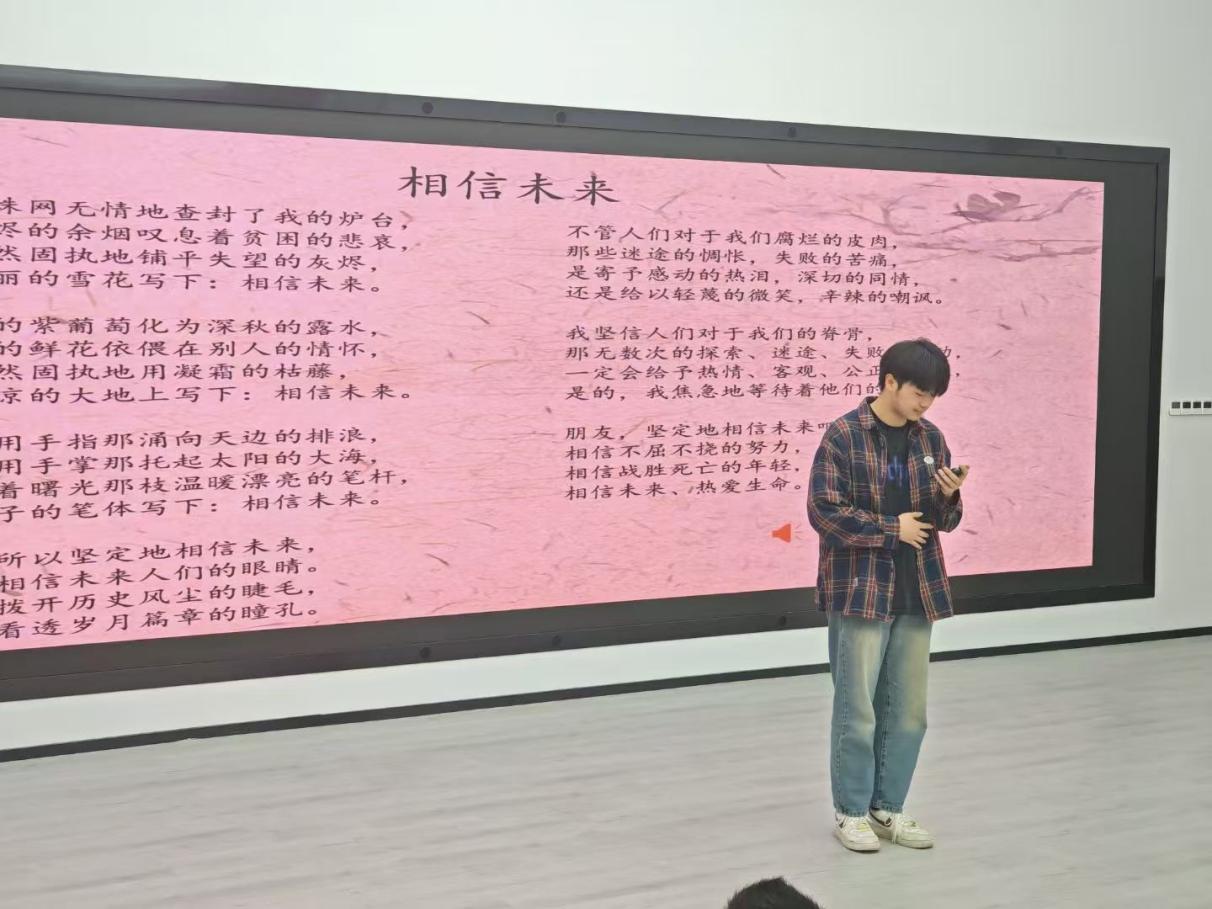 相信未来
蛛网无情地查封了我的炉台，
烬的余烟叹息着贫困的悲哀，
然固执地铺平失望的灰烬，
丽的雪花写下：相信未来。
的紫葡萄化为深秋的露水，
的鲜花依偎在别人的情怀，
然固执地用凝霜的枯藤，
凉的大地上写下：相信未来。
用手指那涌向天边的排浪，
用手掌那托起太阳的大海，
着曙光那枝温暖漂亮的笔杆，
子的笔体写下：相信未来。
所以坚定地相信未来，
相信未来人们的眼睛。
拨开历史风尘的睫毛，
看透岁月篇章的瞳孔。
不管人们对于我们腐烂的皮肉，
那些迷途的惆怅，失败的苦痛，
是寄予感动的热泪，深切的同情，
还是给以轻蔑的微笑，辛辣的嘲讽。
我坚信人们对于我们的脊骨，
那无数次的探索、迷途、失败
一定会给予热情、客观、公正
是的，我焦急地等待着他们的
朋友，坚定地相信未来吧
相信不屈不挠的努力，
相信战胜死亡的年轻，
相信未来、热爱生命。